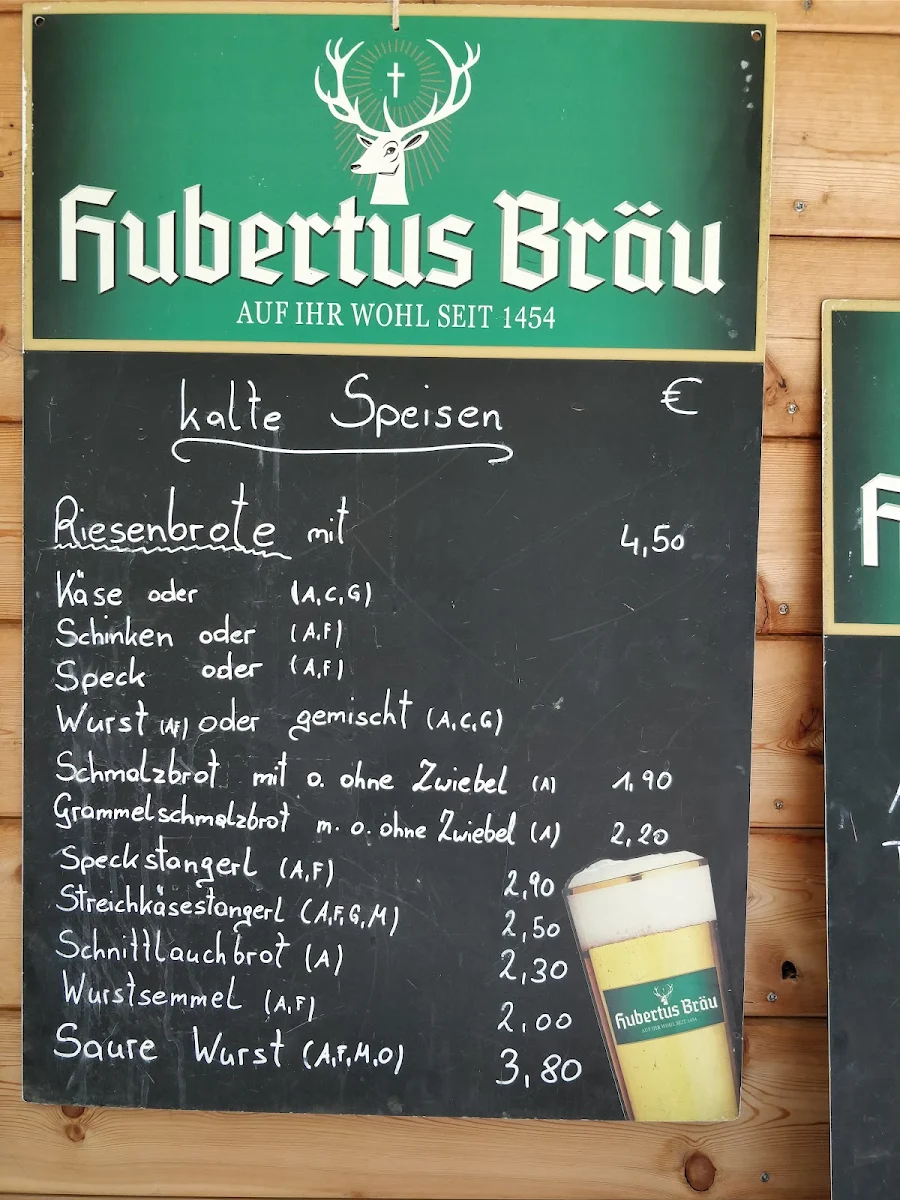 Hubertus Bräu
AUF IHR WOHL SEIT 1454
kalte Speisen €
Riesenbrote mit 4,50
Käse oder (A,C,G)
Schinken oder (A,F)
Speck oder (A,F)
Wurst (AF) oder gemischt (A,C,G)
Schmalzbrot mit o. ohne Zwiebel (A) 1,90
Grammelschmalzbrot m. o. ohne Zwiebel (A) 2,20
Speckstangerl (A,F) 2,90
Streichkäsestangerl (A,F,G,M) 2,50
Schnittlauchbrot (A) 2,30
Wurstsemmel (A,F) 2,00
Saure Wurst (A,F,M,O) 3,80
Hubertus Bräu
AUF IHR WOHL SEIT 1454